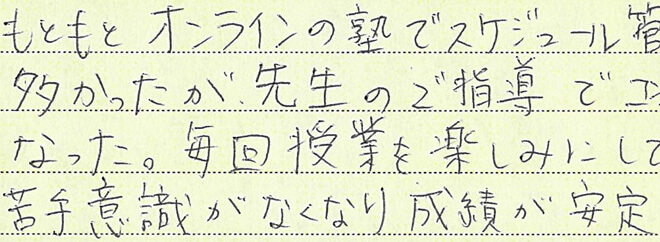 もともとオンラインの塾でスケジュール管
多かったが、先生のご指導でコン
なった。毎回授業を楽しみにして
苦手意識がなくなり成績が安定